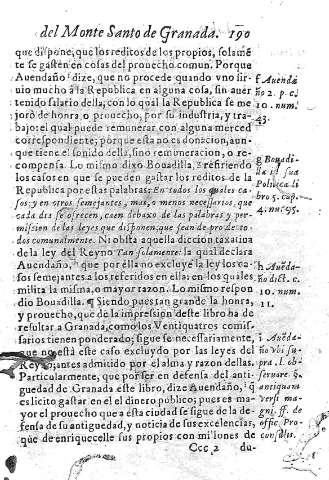 del Monte Santo de Granada. 190
que dispone, que los reditos de los propios, solamẽ
te se gasten en cosas del prouecho comun. Porque
Auendaño f dize, que no procede quando vno sir
uio mucho à la Republica en alguna cosa, sin auer
tenido salario della, con lo qual la Republica se me
jorò en honra o prouecho, por su industria, y tra-
bajo: el qual puede remunerar con alguna merced
correspondiente; porque esta no es donacion, aun-
que tiene el sonido della, sino remuneracion, o re-
compensa. Lo mismo dixo Bouadilla, g refiriendo
los casos en que se pueden gastar los reditos de la
Republica por estas palabras: En todos los quales ca-
sos; y en otros semejantes, mas, o menos necessarios, que
cada dia se ofrecen, caen debaxo de las palabras y per-
mission de las leyes que disponen, que sean de pro de to-
dos comunalmente. Ni obsta aquella diccion taxatiua
de la ley del Reyno Tan solamente: la qual declara
Auendaño, h que por ella no excluye la ley los ca-
sos semejantes a los referidos en ella: en los quales
milita la misma, o mayor razon. Lo mismo respon
dio Bouadilla. ¶ Siendo pues tan grande la honra,
y prouecho, que de la impression deste libro ha de
resultar a Granada, como los Ventiquatros comis-
sarios tienen ponderado; sigue se necessariamente,
que no està este caso excluydo por las leyes del
Reyno; antes admitido por el alma y razon dellas.
Particularmente, que por ser en defensa del anti-
guedad de Granada este libro, dize Auendaño, i q̃
es licito gastar en el el dinero publico; pues es ma-
yor el prouecho que a esta ciudad se sigue de la de-
fensa de su antiguedad, y noticia de sus excelencias,
que de enriquecelle sus propios con millones de
Ccc 2 du-
f Auenda
ño 2. p. c.
10. num.
43.
g Bouadi-
lla in sua
Politica li
bro 5. cap.
4. nu. 95.
h Auēda-
ño dict. c.
10. num.
11.
i Auēda-
ño vbi su-
pra. l. ob-
seruare §.
antiquam
versi ma
gni. ff. de
offic. Pro
consulis.